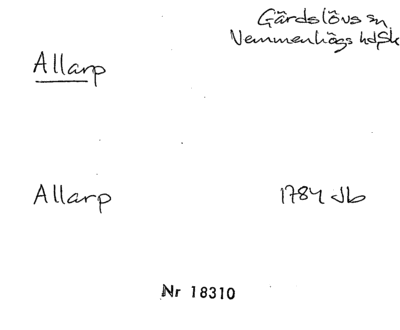 Gärdslövs sn
Vemmenhögs hd, Sk
Allarp
Allarp 1784 Jb
Nr 18310